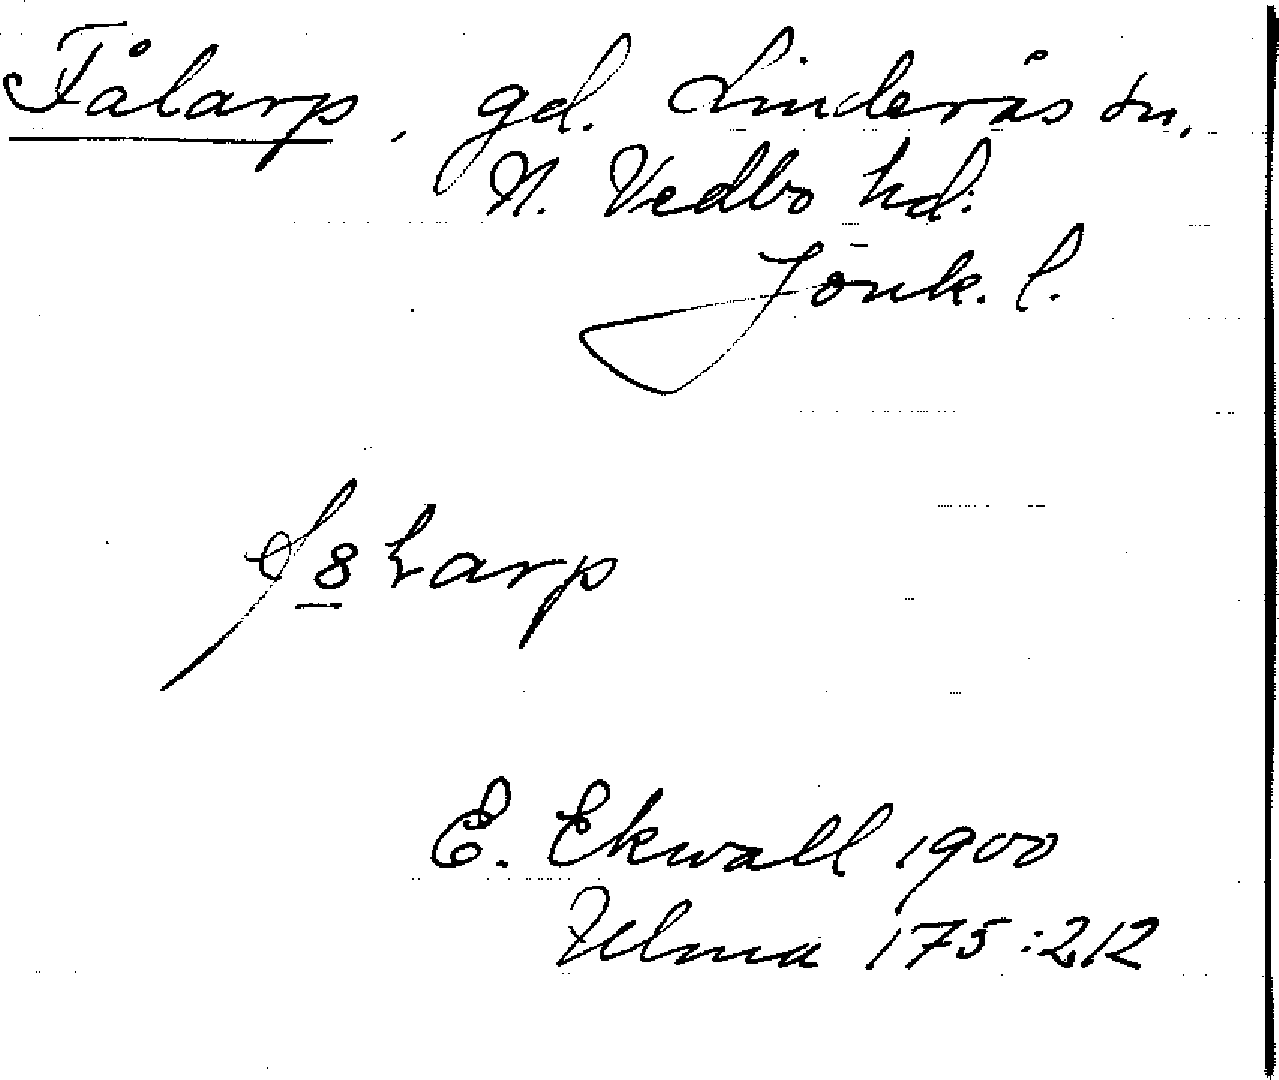 Fålarp, gd. Linderås sn,
N. Vedbo hd.
Jönk. l.
E. Ekwall 1900
Ulma 175:212